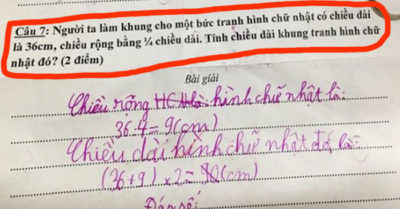 Câu 7: Người ta làm khung cho một bức tranh hình chữ nhật có chiều dài
là 36cm, chiều rộng bằng ¼ chiều dài. Tính chiều dài khung tranh hình chữ
nhật đó? (2 điểm)
Bài giải
Chiều rộng hình chữ nhật là:
36:4=9(cm)
Chiều dài hình chữ nhật đó là:
(36+9) x2= (cm)
Đáp số: